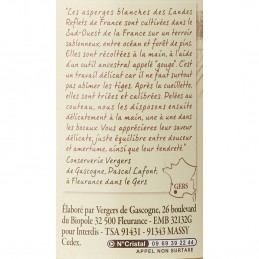 "Les asperges blanches des Landes
Reflets de France sont cultivées dans le
Sud-Ouest de la France sur un terroir
sablonneux, entre océan et forêt de pins.
Elles sont récoltées à la main, à l'aide
d'un outil ancestral appelé "gouge". C'est
un travail délicat car il ne faut surtout
pas abîmer les tiges. Après la cueillette,
elles sont triées et calibrées. Pelées au
couteau, nous les disposons ensuite
délicatement à la main, une à une dans
les bocaux, équilibre juste entre douceur
et amertume, ainsi que leur tendreté."
Conserverie Vergers
de Gascogne, Pascal Lafont,
à Fleurance dans le Gers
GERS
Élaboré par Vergers de Gascogne, 26 boulevard
du Biopole 32 500 Fleurance - EMB 32132G
pour Interdis - TSA 91431 - 91343 MASSY
Cedex.
N°Cristal 09 69 39 22 44
APPEL NON SURTAXE